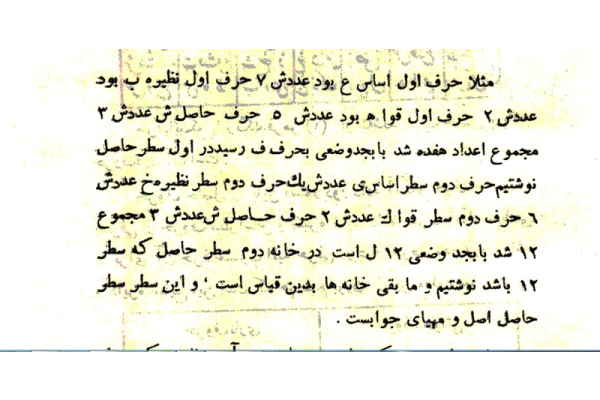 مثلا حرف اول اساس ع بود عددش ۷ حرف اول نظیره ب بود
عددش ۲ حرف اول قوا ه بود عددش ۵ حرف حاصل ش عددش ۳
مجموع اعداد هفده شد بابجدوضعی بحرف ف رسیددر اول سطر حاصل
نوشتیم حرف دوم سطر اساس ی عددش یك حرف دوم سطر نظیره خ عددش
٦ حرف دوم سطر قوا ك عددش ۲ حرف حاصل ش عددش ۳ مجموع
۱۲ شد بابجد وضعی ۱۲ ل است در خانه دوم سطر حاصل که سطر
۱۲ باشد نوشتیم و ما بقی خانه ها بدین قیاس است ؛ و این سطر سطر
حاصل اصل و مهیای جوابست .